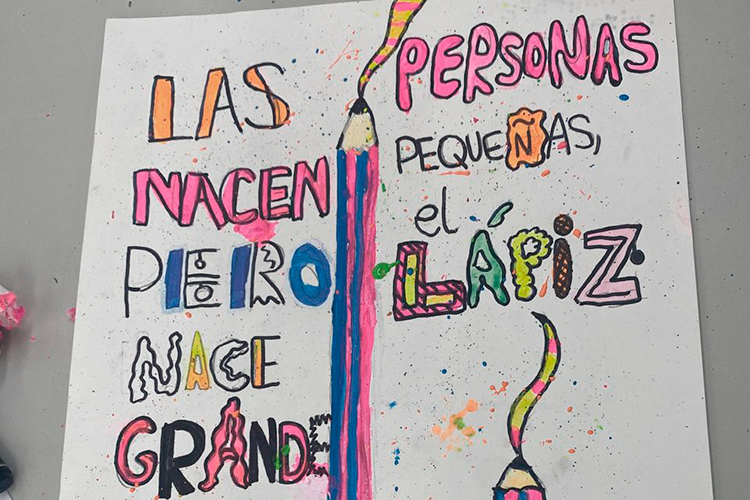 LAS PERSONAS
NACEN PEQUEÑAS,
PERO el LÁPIZ
NACE
GRANDE